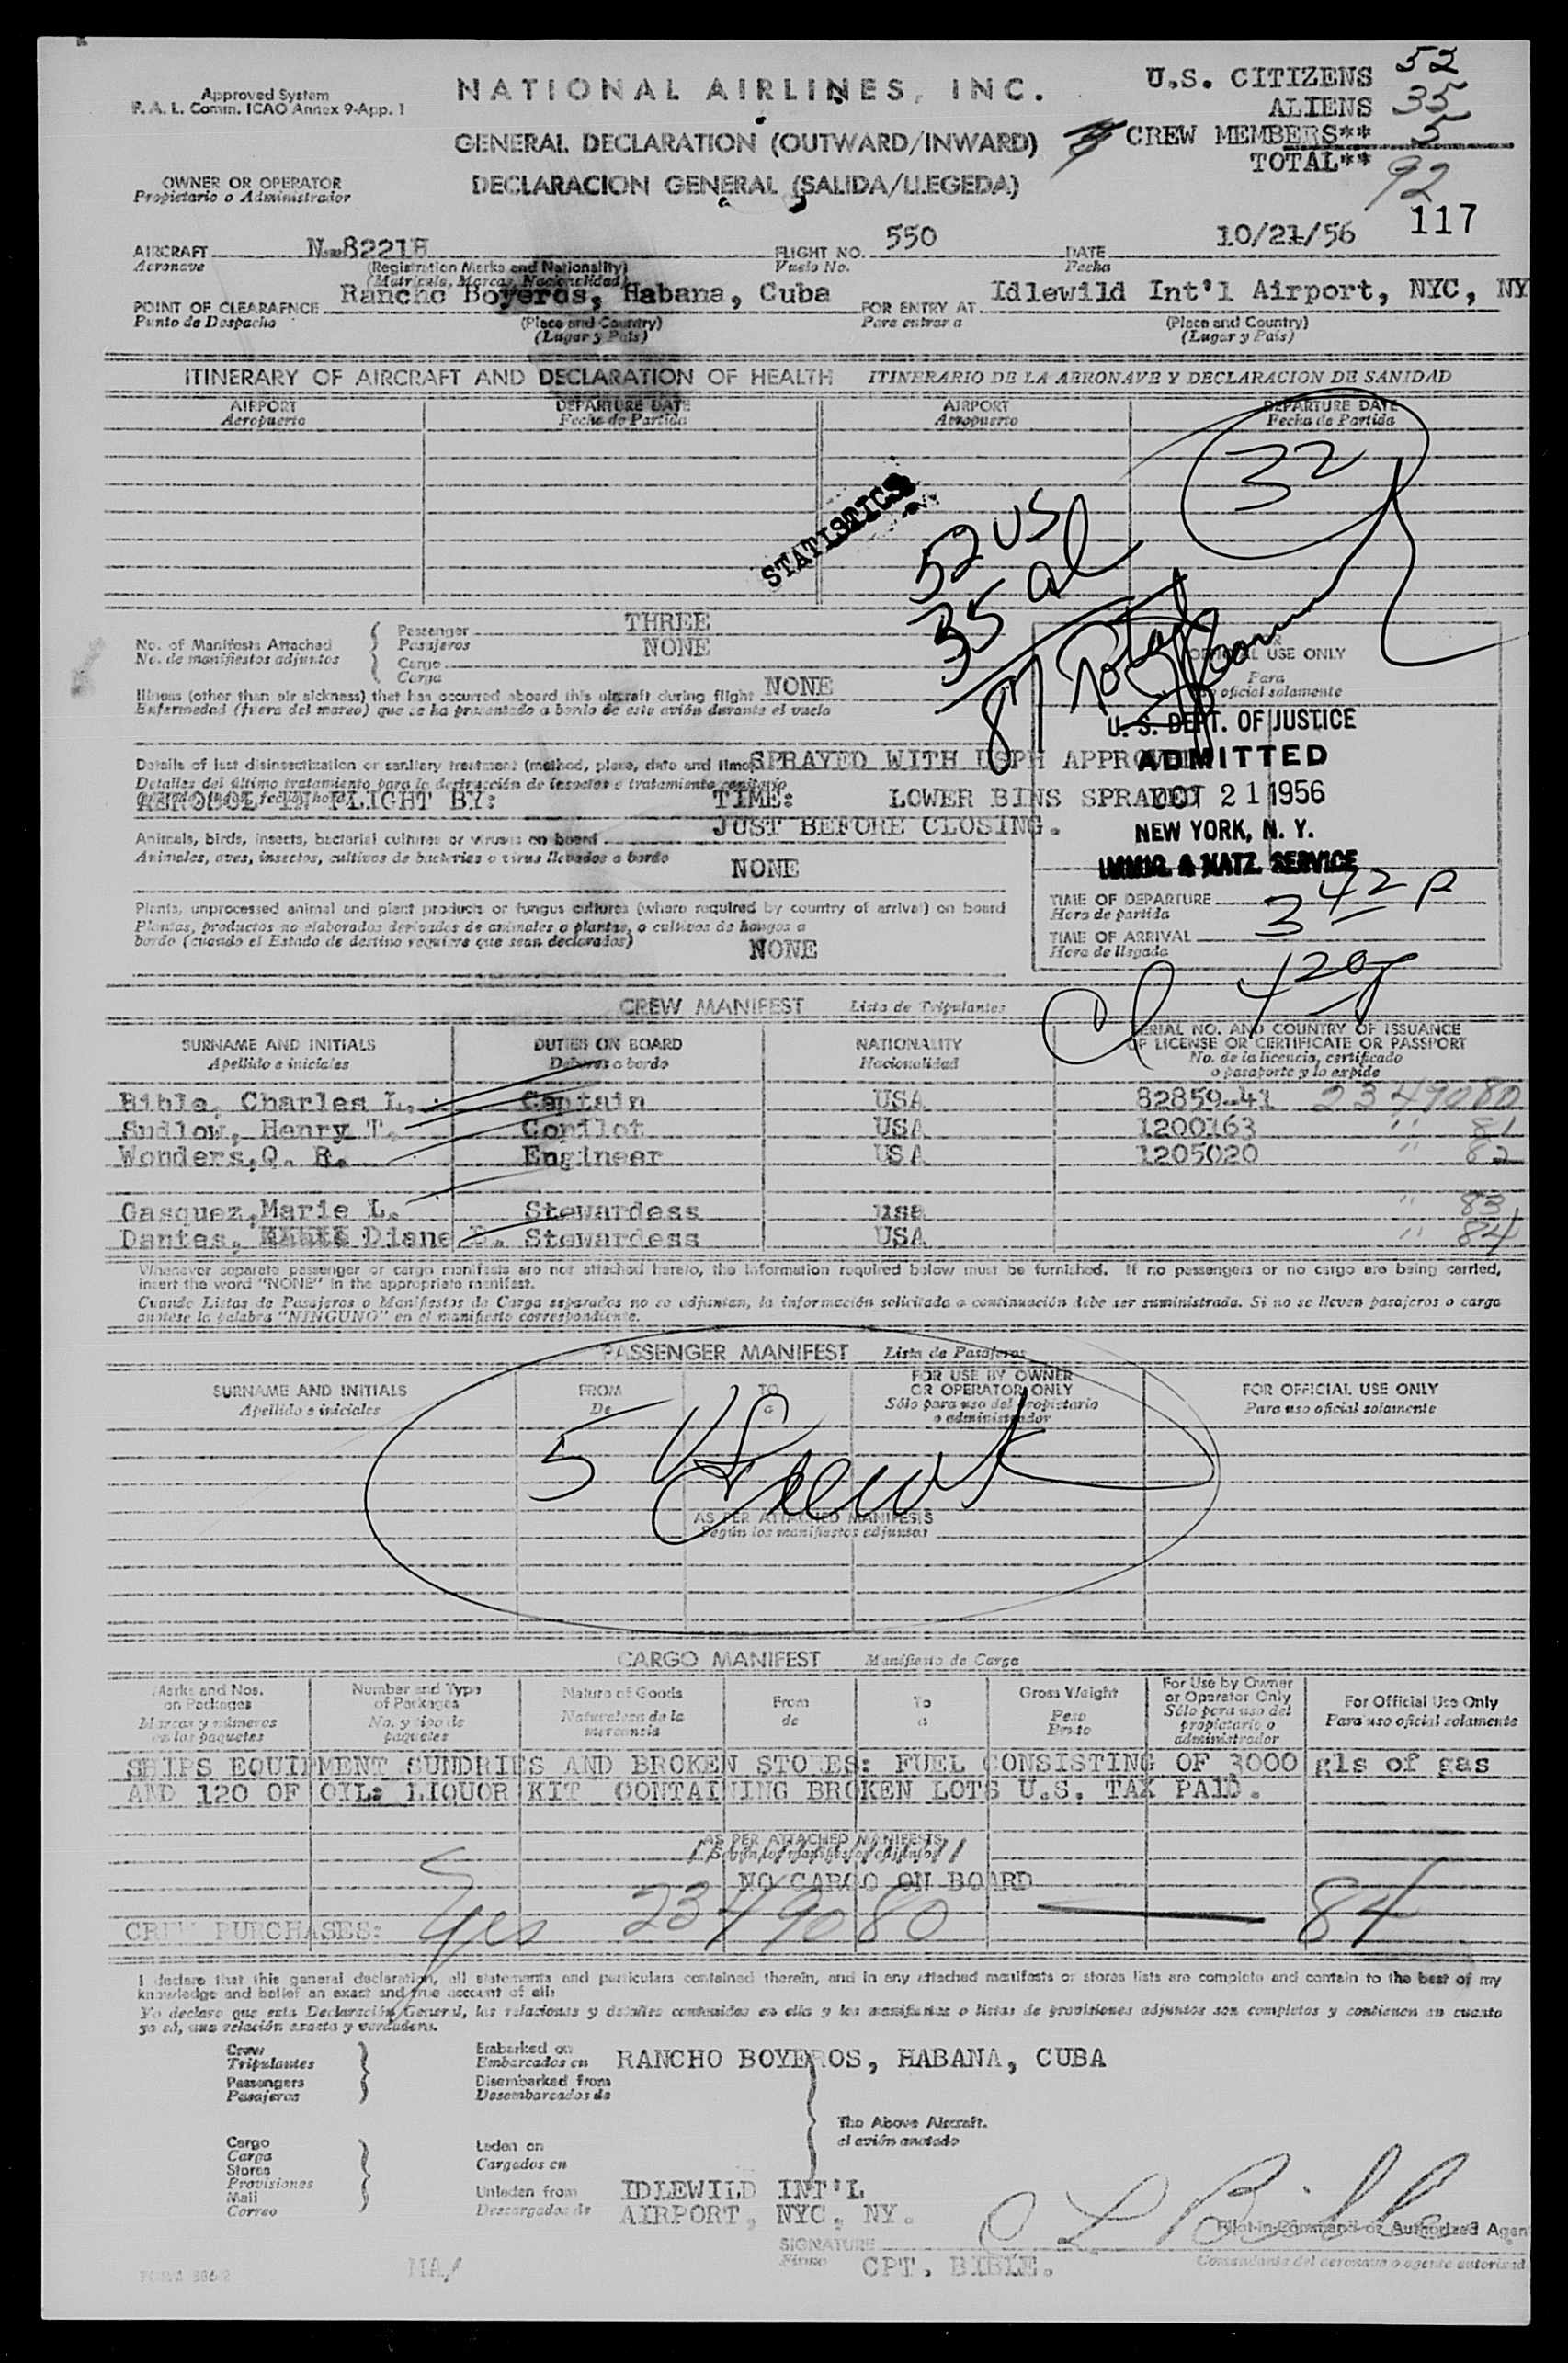 Approved System
F. A. L. Comm. ICAO Annex 9-App. 1
NATIONAL AIRLINES, INC.
U.S. CITIZENS 52
ALIENS 35
CREW MEMBERS** 5
TOTAL** 92
GENERAL DECLARATION (OUTWARD/INWARD)
OWNER OR OPERATOR
Propietario o Administrador
DECLARACION GENERAL (SALIDA/LLEGEDA)
117
AIRCRAFT N-8221H
Aeronave
(Registration Marks and Nationality)
(Matricula, Marcas, Nacionalidad)
FLIGHT NO. 550
Vuelo No.
DATE 10/21/56
Fecha
POINT OF CLEARAFNCE Rancho Boyeros, Habana, Cuba
Punto de Despacho
(Place and Country)
(Lugar y País)
FOR ENTRY AT Idlewild Int'l Airport, NYC, NY
Para entrar a
(Place and Country)
(Lugar y País)
ITINERARY OF AIRCRAFT AND DECLARATION OF HEALTH ITINERARIO DE LA AERONAVE Y DECLARACION DE SANIDAD
AIRPORT DEPARTURE DATE AIRPORT DEPARTURE DATE
Aeropuerto Fecha de Partida Aeropuerto Fecha de Partida
32
STATISTICS
52 US
35 al
87 Total
No. of Manifests Attached
No. de manifiestos adjuntos
Passenger THREE
Pasajeros
Cargo NONE
Carga
OFFICIAL USE ONLY
Para
oficial solamente
Illness (other than air sickness) that has occurred aboard this aircraft during flight NONE
Enfermedad (fuera del mareo) que se ha presentado a bordo de este avión durante el vuelo
U. S. DEPT. OF JUSTICE
ADMITTED
OCT 21 1956
NEW YORK, N. Y.
IMMIG. & NATZ. SERVICE
Details of last disinsectization or sanitary treatment (method, place, date and time) SPRAYED WITH USPH APPROVED
Detalles del último tratamiento para la destrucción de insectos o tratamiento sanitario
AEROSOL IN FLIGHT BY: TIME: LOWER BINS SPRAYED
JUST BEFORE CLOSING.
Animals, birds, insects, bacterial cultures or viruses on board
Animales, aves, insectos, cultivos de bacterias o virus llevados a bordo
NONE
Plants, unprocessed animal and plant products or fungus cultures (where required by country of arrival) on board
Plantas, productos no elaborados derivados de animales o plantas, o cultivos de hongos a
bordo (cuando el Estado de destino requiere que sean declarados)
NONE
TIME OF DEPARTURE 3 42 P
Hora de partida
TIME OF ARRIVAL
Hora de llegada
CREW MANIFEST Lista de Tripulantes
SURNAME AND INITIALS DUTIES ON BOARD NATIONALITY SERIAL NO. AND COUNTRY OF ISSUANCE
OF LICENSE OR CERTIFICATE OR PASSPORT
Apellido e iniciales Deberes a bordo Nacionalidad No. de la licencia, certificado
o pasaporte y lo expide
Bible, Charles L. Captain USA 82859-41 2349080
Sudlow, Henry T. Copilot USA 1200163 " 81
Wonders,Q. R. Engineer USA 1205020 " 82
Gasquez,Marie L. Stewardess usa " 83
Dantes, Diane Stewardess USA " 84
Whenever separate passenger or cargo manifests are not attached hereto, the information required below must be furnished. If no passengers or no cargo are being carried,
insert the word "NONE" in the appropriate manifest.
Cuando Listas de Pasajeros o Manifiestos de Carga separados no se adjuntan, la información solicitada a continuación debe ser suministrada. Si no se lleven pasajeros o carga
anótese la palabra "NINGUNO" en el manifiesto correspondiente.
PASSENGER MANIFEST Lista de Pasajeros
SURNAME AND INITIALS FROM TO FOR USE BY OWNER
OR OPERATOR ONLY FOR OFFICIAL USE ONLY
Apellido e iniciales De a Sólo para uso del propietario
o administrador Para uso oficial solamente
5 US
AS PER ATTACHED MANIFESTS
Según los manifiestos adjuntos
CARGO MANIFEST Manifiesto de Carga
Marks and Nos.
on Packages
Marcas y números
en los paquetes
Number and Type
of Packages
No. y tipo de
paquetes
Nature of Goods
Naturaleza de la
mercancia
From
de
To
a
Gross Weight
Peso
Bruto
For Use by Owner
or Operator Only
Sólo para uso del
propietario o
administrador
For Official Use Only
Para uso oficial solamente
SHIPS EQUIPMENT SUNDRIES AND BROKEN STORES: FUEL CONSISTING OF 3000 gls of gas
AND 120 OF OIL: LIQUOR KIT CONTAINING BROKEN LOTS U.S. TAX PAID.
AS PER ATTACHED MANIFESTS
NO CARGO ON BOARD
CREW PURCHASES: Yes 2349080 — 84
I declare that this general declaration, all statements and particulars contained therein, and in any attached manifests or stores lists are complete and contain to the best of my
knowledge and belief an exact and true account of all:
Yo declaro que esta Declaración General, las relaciones y detalles contenidos en ella y los manifiestos o listas de provisiones adjuntos son completos y contienen en cuanto
yo sé, una relación exacta y verdadera.
Crew
Tripulantes
Passengers
Pasajeros
Embarked on
Embarcados en
RANCHO BOYEROS, HABANA, CUBA
Disembarked from
Desembarcados de
The Above Aircraft.
el avión anotado
Cargo
Carga
Stores
Provisiones
Mail
Correo
Laden on
Cargados en
Unladen from
Descargados de
IDLEWILD INT'L
AIRPORT, NYC, NY.
C L Bible
Pilot-in-Command or Authorized Agen
SIGNATURE
Firma
CPT. BIBLE.
Comandante del aeronave o agente autorizad